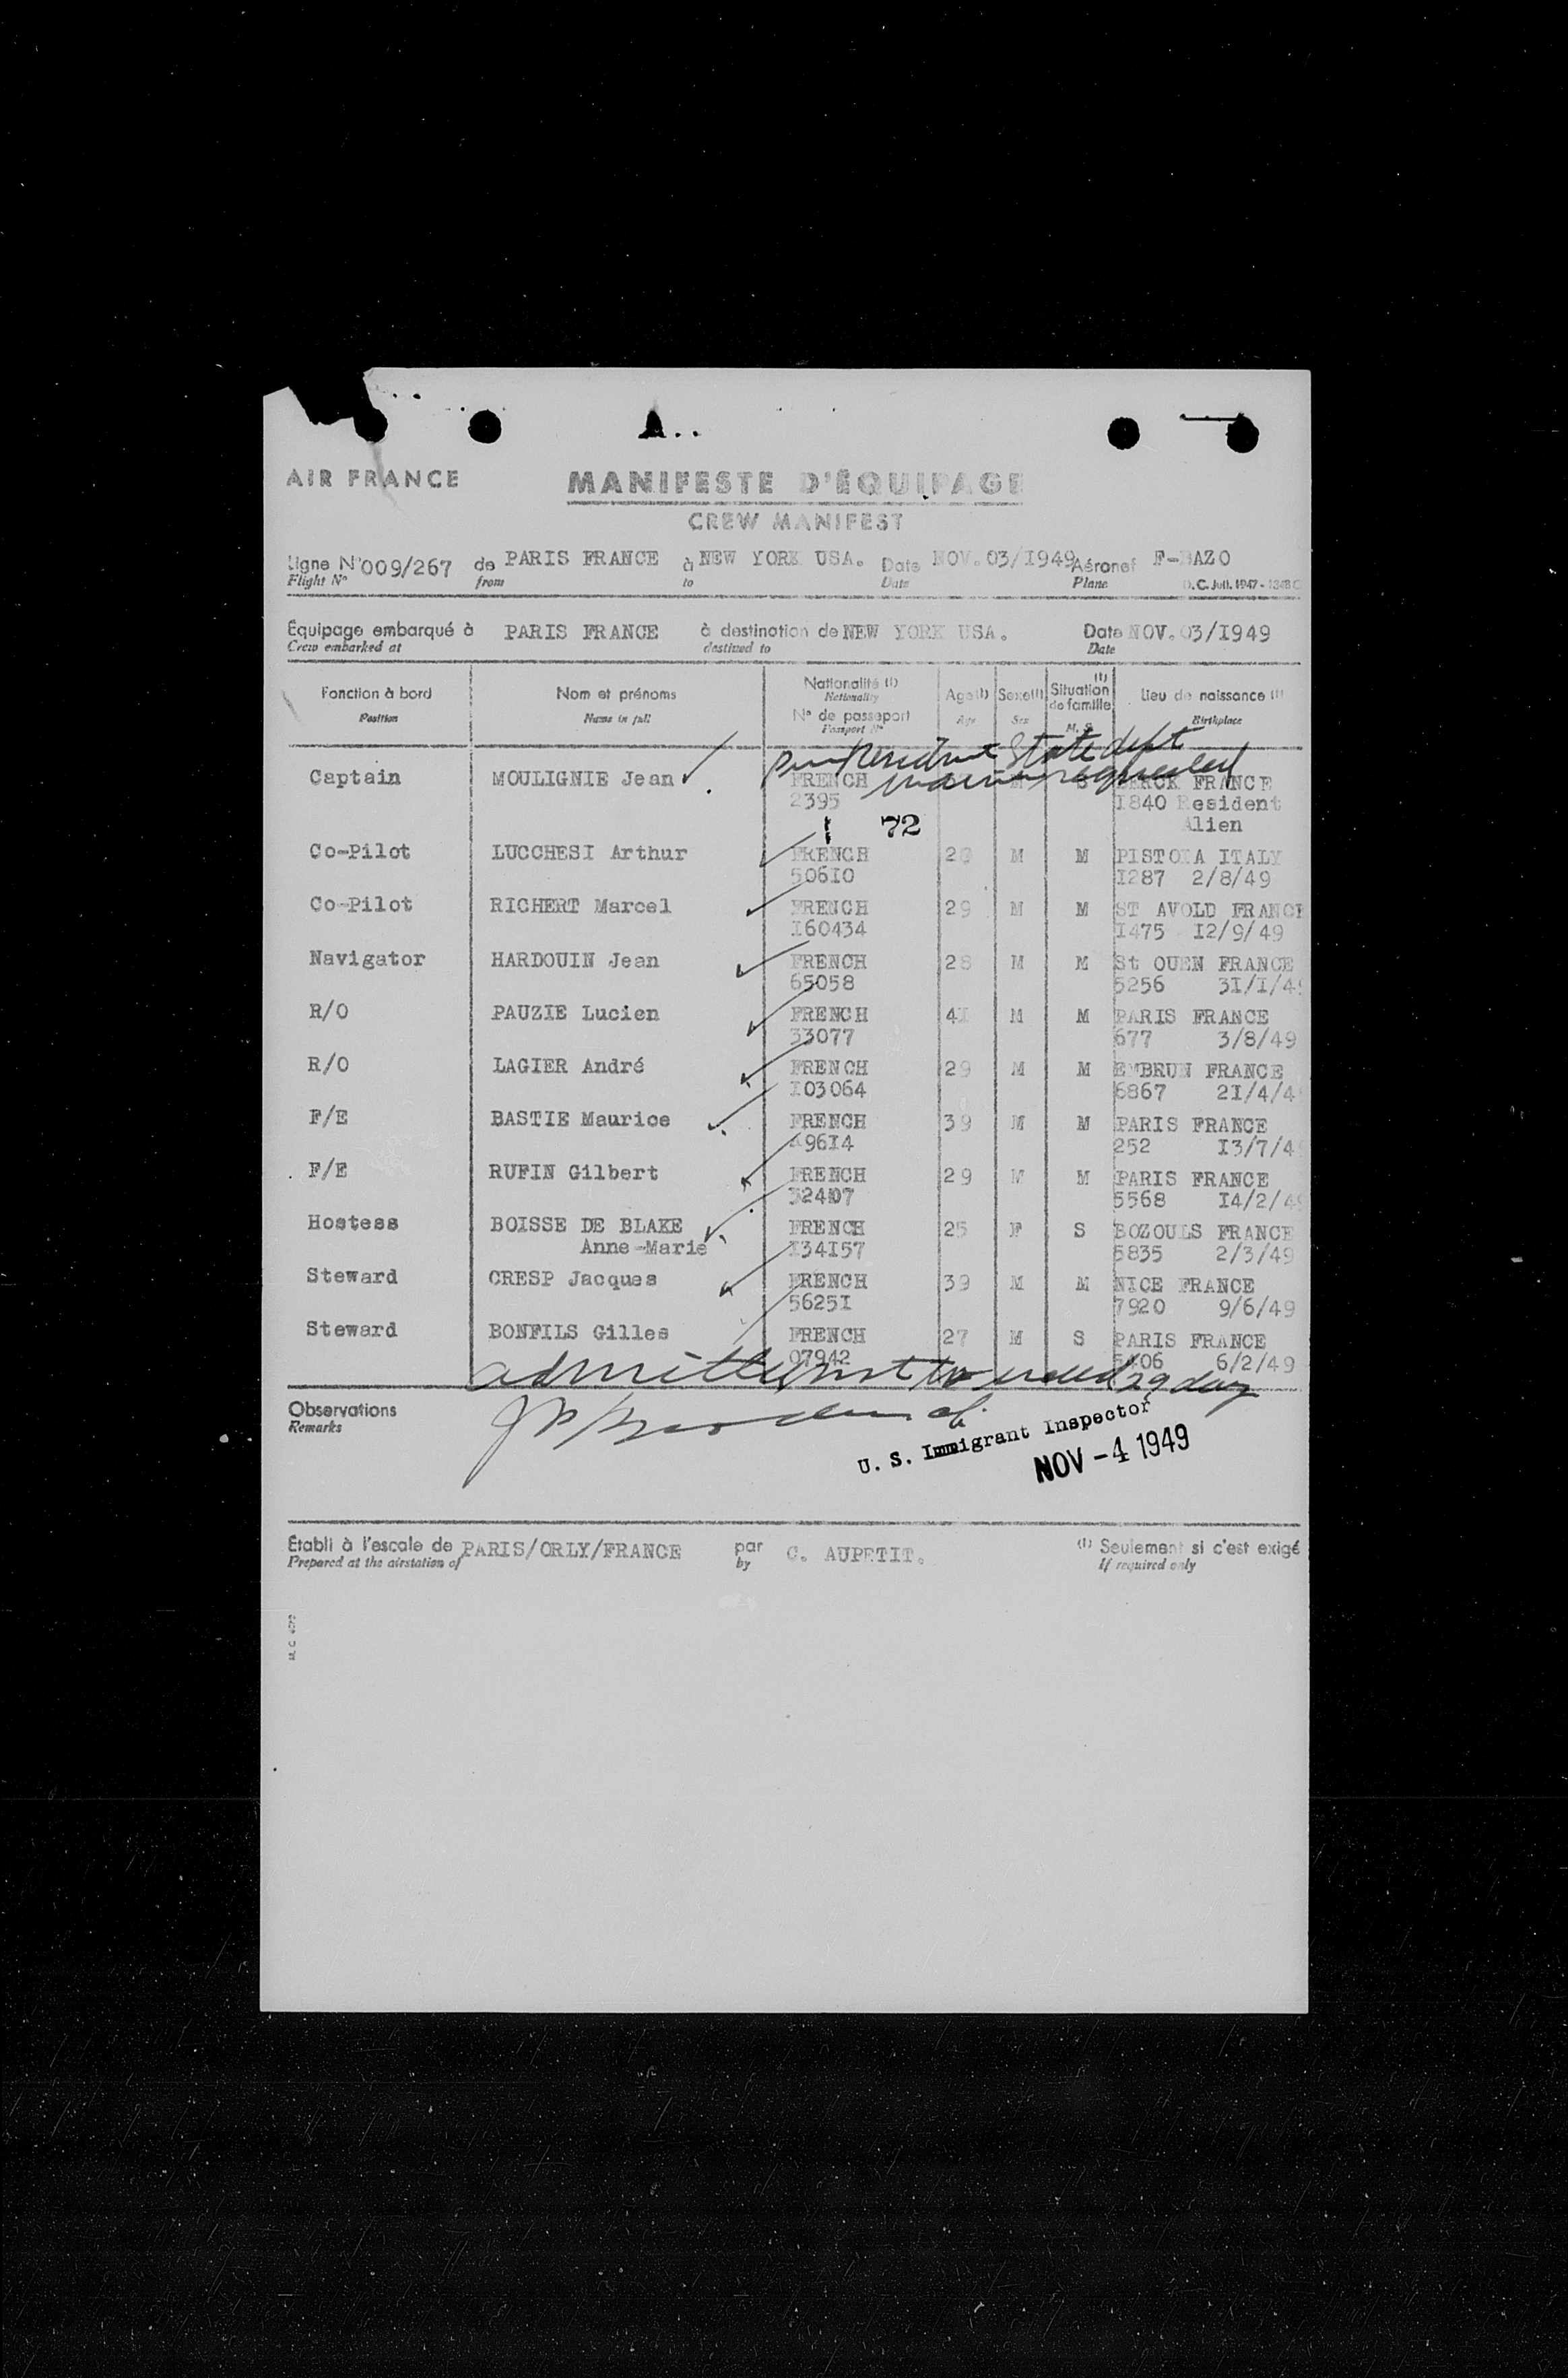 AIR FRANCE MANIFESTE D'ÉQUIPAGE
CREW MANIFEST
Ligne N° 009/267 de PARIS FRANCE à NEW YORK USA. Date NOV. 03/I949 Aéronef F-BAZO
Flight N° from to Date Plane
Équipage embarqué à PARIS FRANCE à destination de NEW YORK USA. Date NOV. 03/I949
Crew embarked at destined to Date
Fonction à bord Nom et prénoms Nationalité (1) Age (1) Sexe (1) Situation de famille (1) Lieu de naissance (1)
Position Name in full Nationality Age Sex M. S. Birthplace
N° de passeport
Passport N°
Resident State dept
requested
Captain MOULIGNIE Jean FRENCH S BERCK FRANCE
2395 I840 Resident
Alien
72
Co-Pilot LUCCHESI Arthur FRENCH M M PISTOIA ITALY
506I0 I287 2/8/49
Co-Pilot RICHERT Marcel FRENCH 29 M M ST AVOLD FRANCE
I60434 I475 I2/9/49
Navigator HARDOUIN Jean FRENCH 28 M M St OUEN FRANCE
65058 5256 3I/I/4
R/O PAUZIE Lucien FRENCH 4I M M PARIS FRANCE
33077 677 3/8/49
R/O LAGIER André FRENCH 29 M M EMBRUN FRANCE
I03064 6867 2I/4/4
F/E BASTIE Maurice FRENCH 39 M M PARIS FRANCE
96I4 252 I3/7/4
F/E RUFIN Gilbert FRENCH 29 M M PARIS FRANCE
32407 5568 I4/2/4
Hostess BOISSE DE BLAKE FRENCH 25 F S BOZOULS FRANCE
Anne-Marie I34I57 5835 2/3/49
Steward CRESP Jacques FRENCH 39 M M NICE FRANCE
5625I 7920 9/6/49
Steward BONFILS Gilles FRENCH 27 M S PARIS FRANCE
07942 6/2/49
admitted not to exceed 29 days
Observations
Remarks
U. S. Immigrant Inspector
NOV -4 1949
Établi à l'escale de PARIS/ORLY/FRANCE par C. AUPETIT. (1) Seulement si c'est exigé
Prepared at the airstation of by If required only